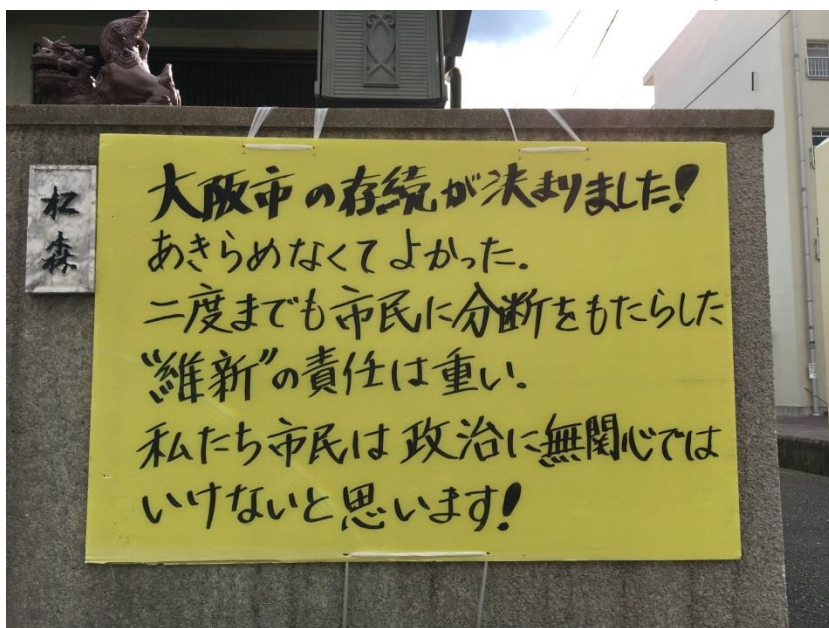 松森
大阪市の存続が決まりました!
あきらめなくてよかった.
二度までも市民に分断をもたらした
〝維新〟の責任は重い.
私たち市民は政治に無関心では
いけないと思います!